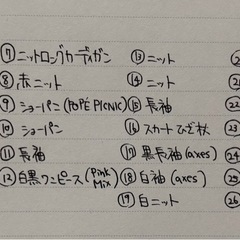 ⑦ ニットロングカーディガン
⑧ 赤ニット
⑨ ショーパン (POPE PICNIC)
⑩ ショーパン
⑪ 長袖
⑫ 白黒ワンピース (Pink Mix)
⑬ ニット
⑭ ニット
⑮ 長袖
⑯ スカートひざ杖
⑰ 黒長袖 (axes)
⑱ 白袖 (axes)
⑲ 白ニット
㉒
㉓
㉔
㉕
㉖